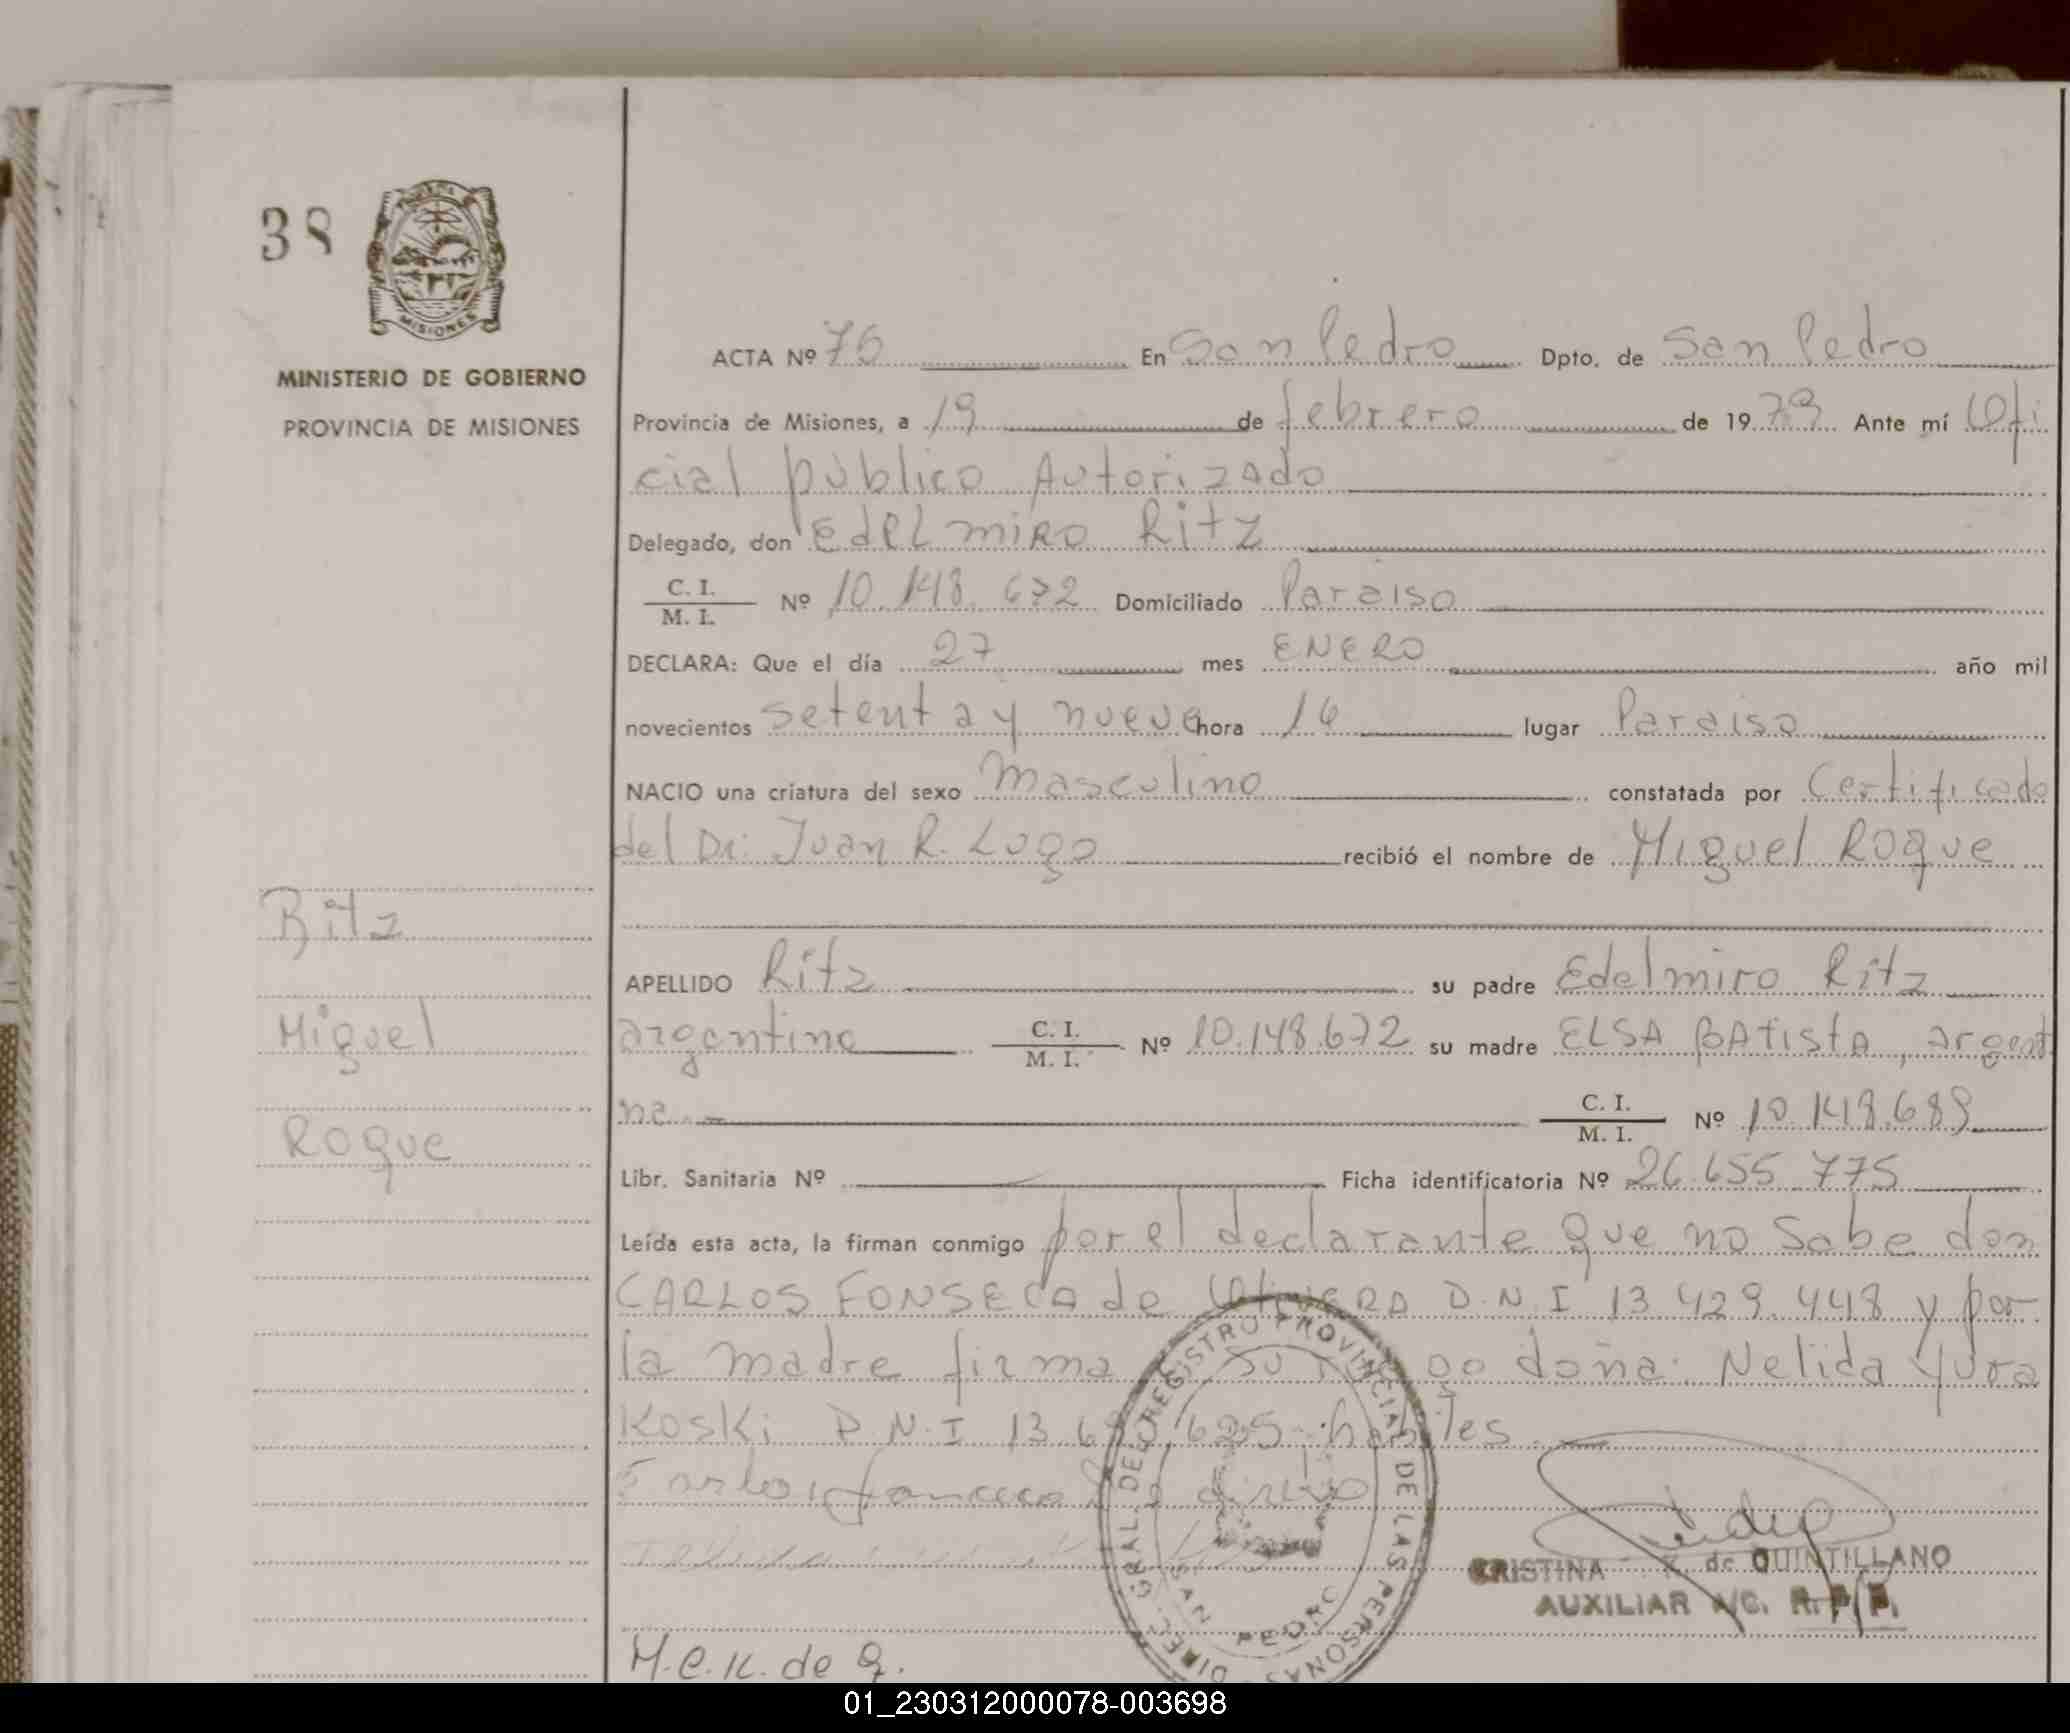 38
MISIONES
MINISTERIO DE GOBIERNO
PROVINCIA DE MISIONES
Ritz
Miguel
Roque
ACTA Nº 75 En San Pedro Dpto. de San Pedro
Provincia de Misiones, a 19 de febrero de 1979 Ante mí Ofi
cial público Autorizado
Delegado, don Edelmiro Ritz
C. I.
M. I. Nº 10.148.672 Domiciliado Paraiso
DECLARA: Que el día 27 mes ENERO año mil
novecientos setenta y nueve hora 16 lugar Paraiso
NACIO una criatura del sexo Masculino constatada por Certificado
del Dr. Juan R. Lugo recibió el nombre de Miguel Roque
APELLIDO Ritz su padre Edelmiro Ritz
argentino C. I. M. I. Nº 10.148.672 su madre ELSA BAtistA, argent
na.- C. I. M. I. Nº 10.148.689
Libr. Sanitaria Nº Ficha identificatoria Nº 26.655.775
Leída esta acta, la firman conmigo por el declarante que no sabe don
CARLOS FONSECA de OliVERA D.N.I 13 429.448 y por
la madre firma su doña: Nelida Yura
Koski D.N.I 13.6 625 habiles
DIREC. GRAL. DEL REGISTRO PROVINCIAL DE LAS PERSONAS
SAN PEDRO
CRISTINA K. de QUINTILLANO
AUXILIAR A/C. R.P.P.
M.C.K. de Q.
01_230312000078-003698